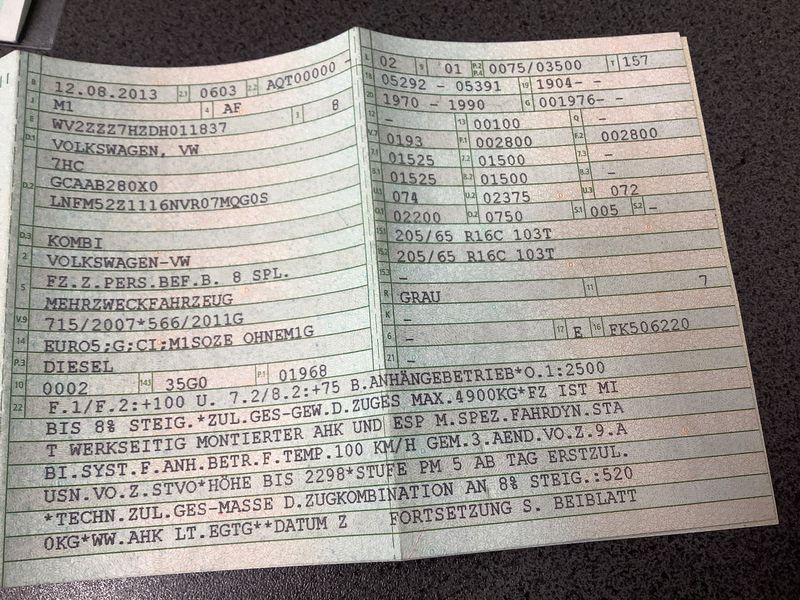 B 12.08.2013 2.1 0603 2.2 AQT00000 -
J M1 4 AF
E WV2ZZZ7HZDH011837 3 8
D.1 VOLKSWAGEN, VW
7HC
D.2 GCAAB280X0
LNFM52Z1116NVR07MQG0S
D.3 KOMBI
2 VOLKSWAGEN-VW
5 FZ.Z.PERS.BEF.B. 8 SPL.
MEHRZWECKFAHRZEUG
V.9 715/2007*566/2011G
14 EURO5;G;CI;M1SOZE OHNEM1G
P.3 DIESEL
10 0002 14.1 35G0 P.1 01968
L 02 9 01 P.2 P.4 0075/03500 T 157
18 05292 - 05391 19 1904- -
20 1970 - 1990 G 001976- -
12 - 13 00100 Q -
V.7 0193 F.1 002800 F.2 002800
7.1 01525 7.2 01500 7.3 -
8.1 01525 8.2 01500 8.3 -
U.1 074 U.2 02375 U.3 072
O.1 02200 O.2 0750 S.1 005 S.2 -
15.1 205/65 R16C 103T
15.2 205/65 R16C 103T
15.3 -
R GRAU 11 7
K -
6 - 17 E 16 FK506220
21 -
22 F.1/F.2:+100 U. 7.2/8.2:+75 B.ANHÄNGEBETRIEB*O.1:2500
BIS 8% STEIG.*ZUL.GES-GEW.D.ZUGES MAX.4900KG*FZ IST MI
T WERKSEITIG MONTIERTER AHK UND ESP M.SPEZ.FAHRDYN.STA
BI.SYST.F.ANH.BETR.F.TEMP.100 KM/H GEM.3.AEND.VO.Z.9.A
USN.VO.Z.STVO*HÖHE BIS 2298*STUFE PM 5 AB TAG ERSTZUL.
*TECHN.ZUL.GES-MASSE D.ZUGKOMBINATION AN 8% STEIG.:520
0KG*WW.AHK LT.EGTG**DATUM Z FORTSETZUNG S. BEIBLATT